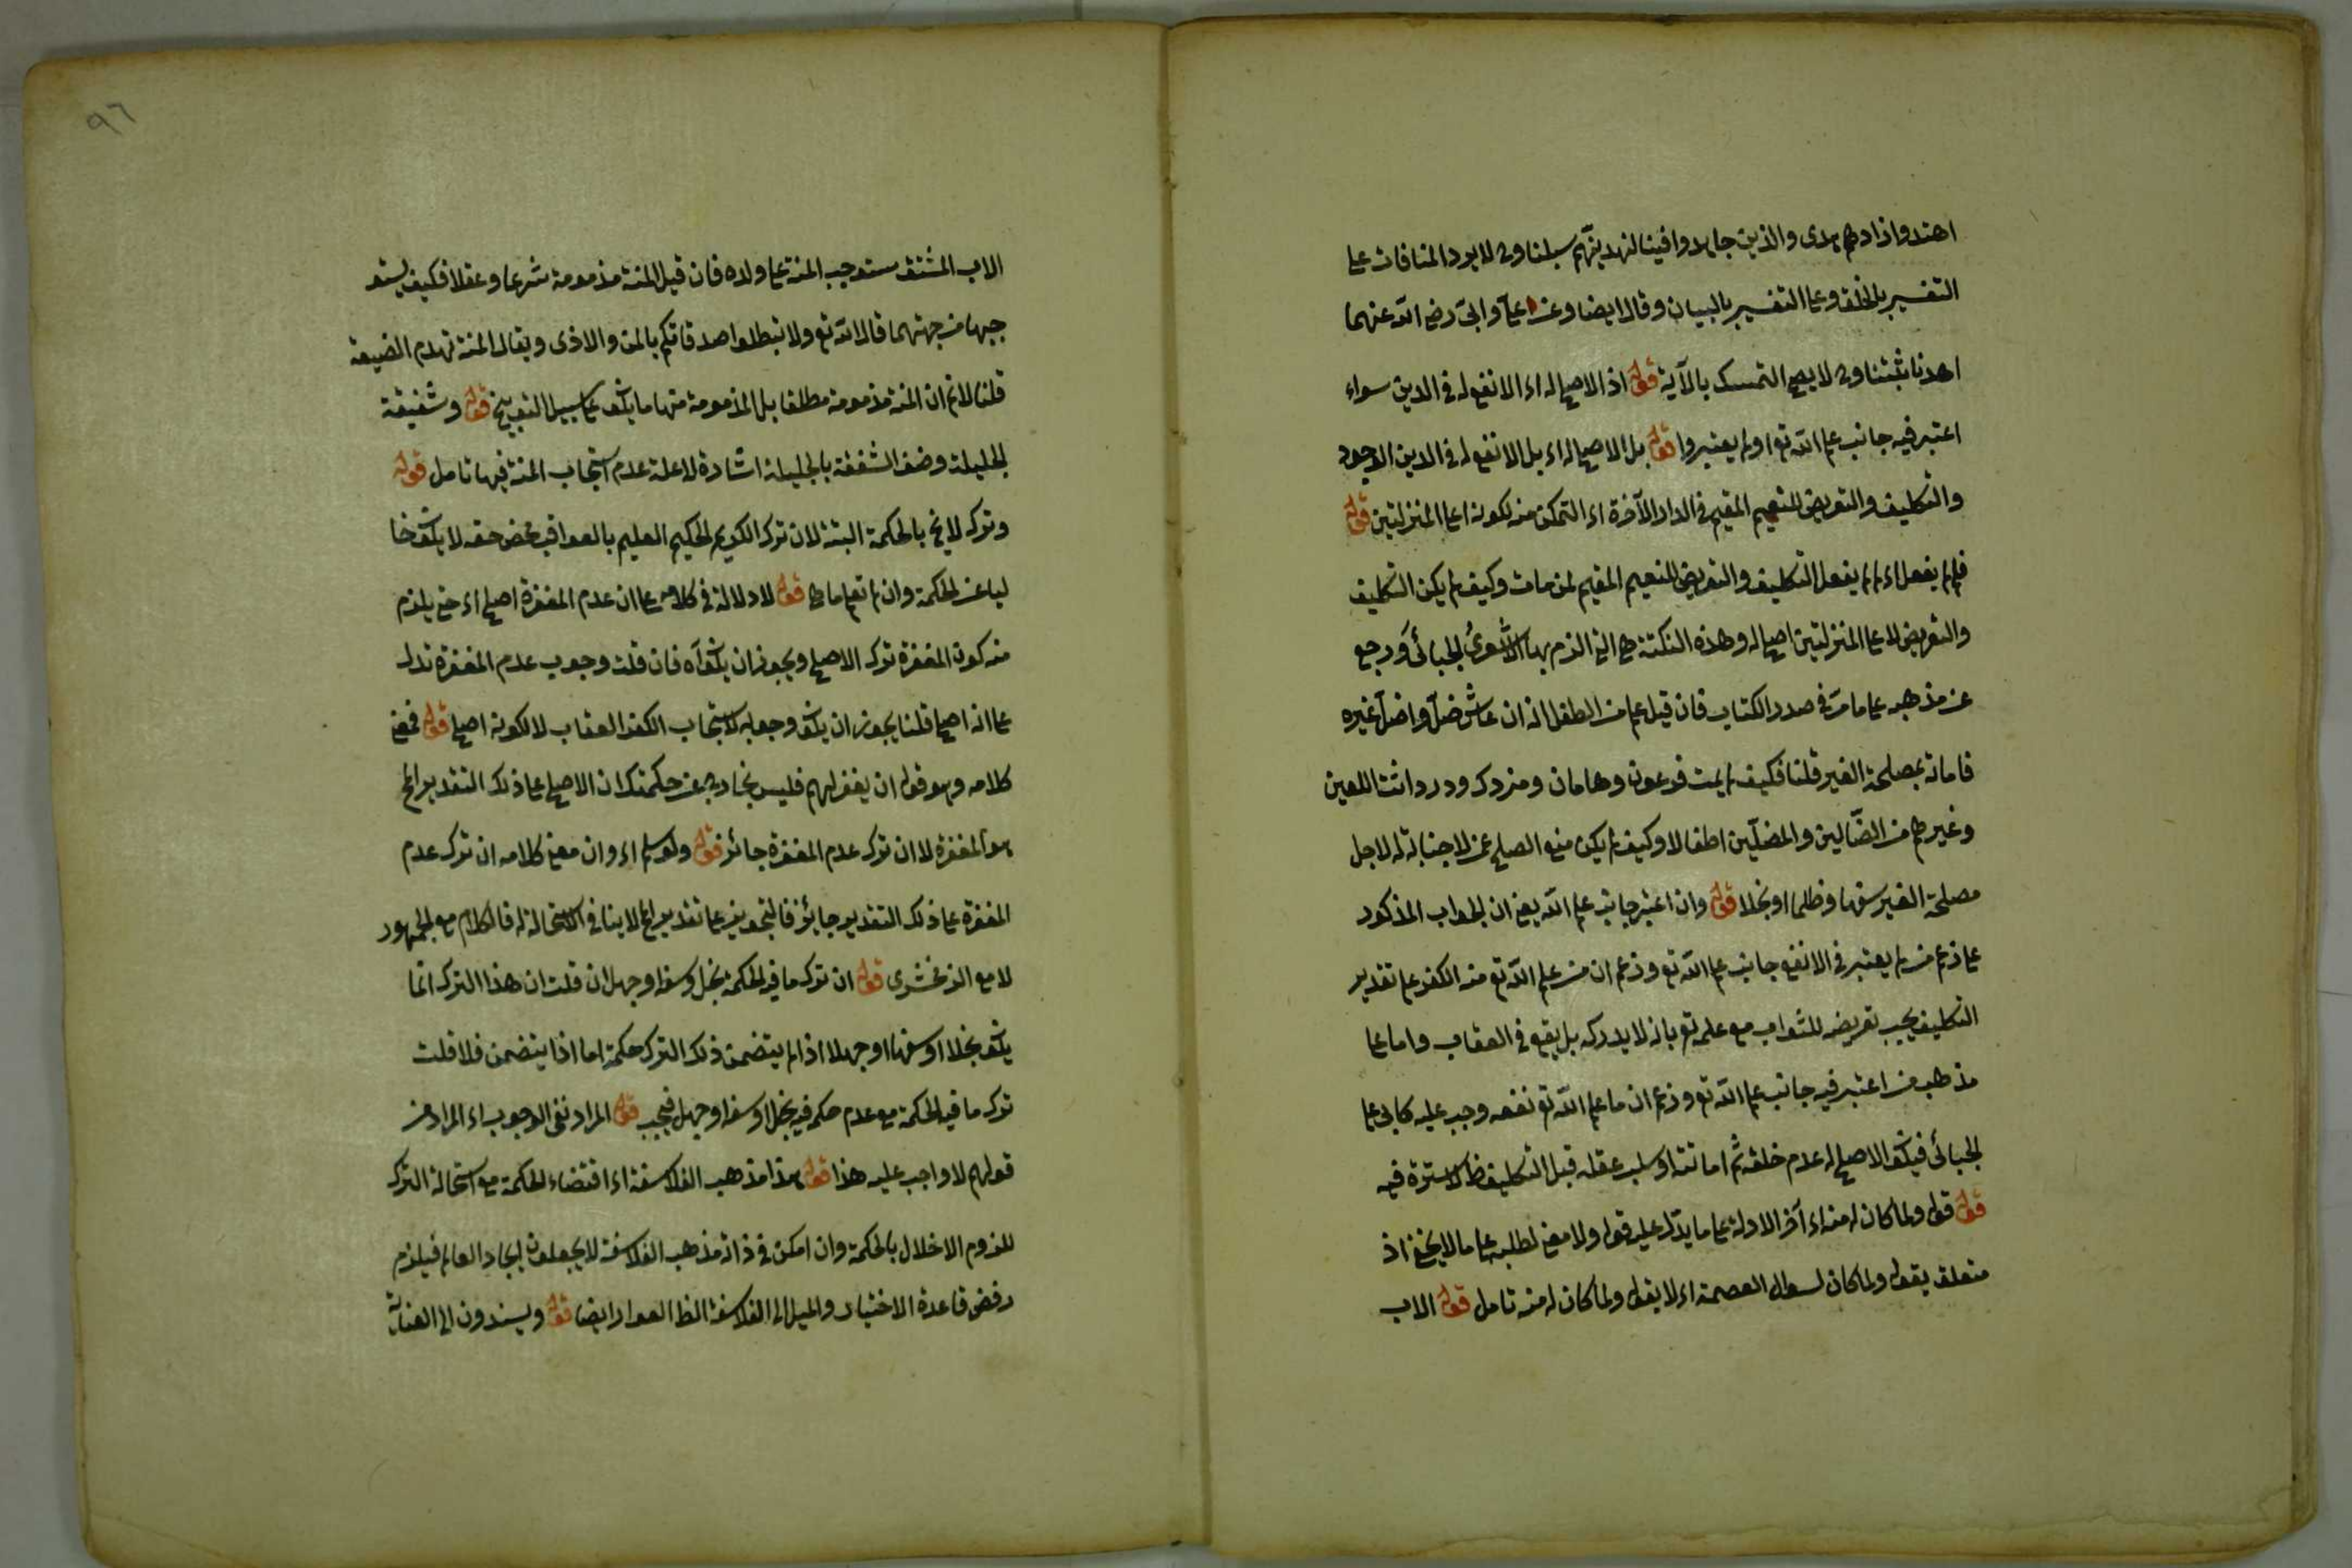 اهتدوا زادهم هدى والذين جاهدوا فينا لنهدينهم سبلنا وح لا يرد المنافات على
التفسير بالخلق وعلى التفسير بالبيان وقال ايضا وعن على وابى رضى الله عنهما
اهدنا ثبتنا وح لا يصح التمسك بالآية قوله اذ الاصلح له اى الانفع له فى الدين سواء
اعتبر فيه جانب علم الله تع او لم يعتبروا قوله بل الاصلح له اى بل الانفع له فى الدين الوجود
والتكليف والتعريض للنعيم المقيم فى الدار الآخرة اى التمكن منه لكونه اعلى المنزلتين قوله
فلم لم يفعل اى لم لم يفعل التكليف والتعريض للنعيم المقيم لمن مات وكيف لم يكن التكليف
والتعريض لاعلى المنزلتين اصلح له وهذه النكتة هى التى الزم بها الاشعرى الجبائى ورجع
عن مذهبه على ما مات فى صدر الكتاب فان قيل علم من الطفل انه ان عاش ضل واضل غيره
فاماته بمصلحة الغير قلنا فكيف لم يمت فرعون وهامان ومزدك وزردانشت اللعين
وغيرهم من الضالين والمضلين اطفالا وكيف لم يكن منع الصلح عن لا جناية له لاجل
مصلحة الغير سفها وظلما او بخلا قوله وان اعتبر جانب علم الله يعنى ان الجواب المذكور
على زعم من لم يعتبر فى الانفع جانب علم الله تع وزعم ان من علم الله تع منه الكفر على تقدير
التكليف يجب تعريضه للثواب مع علمه تع بانه لا يدركه بل يقع فى العقاب واما على
مذهب من اعتبر فيه جانب علم الله تع وزعم ان ما علم الله تع نفعه وجب عليه كابى على
الجبائى فيكون الاصلح له عدم خلقه ثم اماتته او سلب عقله قبل التكليف ظ لا سترة فيه
قوله قوله ولما كان له منه اى آخر الادلة على ما يدل عليه قوله ولا معنى لطلبه على ما لا يخفى اذ
متعلق بقوله ولما كان لسؤال العصمة اى لا بقوله ولما كان له منه تامل قوله الاب
٩٦
الاب المشفق يستوجب المنة على ولده فان قيل المنة مذمومة شرعا وعقلا فكيف يستو
جبها من جهتهما قال الله تع ولا تبطلوا صدقاتكم بالمن والاذى ويقال المنة تهدم الصنيعة
قلنا لا نم ان المنة مذمومة مطلقا بل المذمومة منها ما يكون على سبيل التوبيخ قوله وشفيقة
الجليلة وصف الشفقة بالجليلة اشارة لا علة عدم استجاب المنة فيها تامل قوله
وتركه لا يخ بالحكمة البتة لان ترك الكريم الحكيم العليم بالعواقب محض حقه لا يكون خا
ليا عن الحكمة وان لم نعلم ما هى قوله لا دلالة فى كلامه على ان عدم المغفرة اصلح اى حتى يلزم
منه كون المغفرة ترك الاصلح ويجوز ان يكون آه فان قلت وجوب عدم المغفرة تدل
على انه اصلح قلنا يجوز ان يكون وجوبه لاستجاب الكفر العقاب لا لكونه اصلح قوله فمعنى
كلامه وهو قوله ان يغفر لهم فليس بخارج عن حكمتك ان الاصلح على ذلك التقدير الخ
هو المغفرة لا ان ترك عدم المغفرة جائز قوله ولو سلم اى وان معنى كلامه ان ترك عدم
المغفرة على ذلك التقدير جايز فالتجويز على تقدير الخ لا ينافى الاستحالة له فالكلام مع الجمهور
لا مع الزمخشرى قوله ان ترك ما فيه الحكمة بخل او سفه او جهل ان قلت ان هذا الترك انما
يكون بخلا او سفها او جهلا اذا لم يتضمن ذلك الترك حكمة اما اذا يتضمن فلا قلت
ترك ما فيه الحكمة مع عدم حكم فيه بخل او سفه او جهل فيجب قوله المراد نفى الوجوب اى المراد من
قولهم لا واجب عليه هذا قوله هذا مذهب الفلاسفة اى اقتضاء الحكمة مع استحالة الترك
للزوم الاخلال بالحكمة وان امكن فى ذاته مذهب الفلاسفة لا يجعلون ايجاد العالم فيلزم
رفض قاعدة الاختيار والميل الى الفلاسفة الظ العوار ايضا قوله ويسندون الى العناية